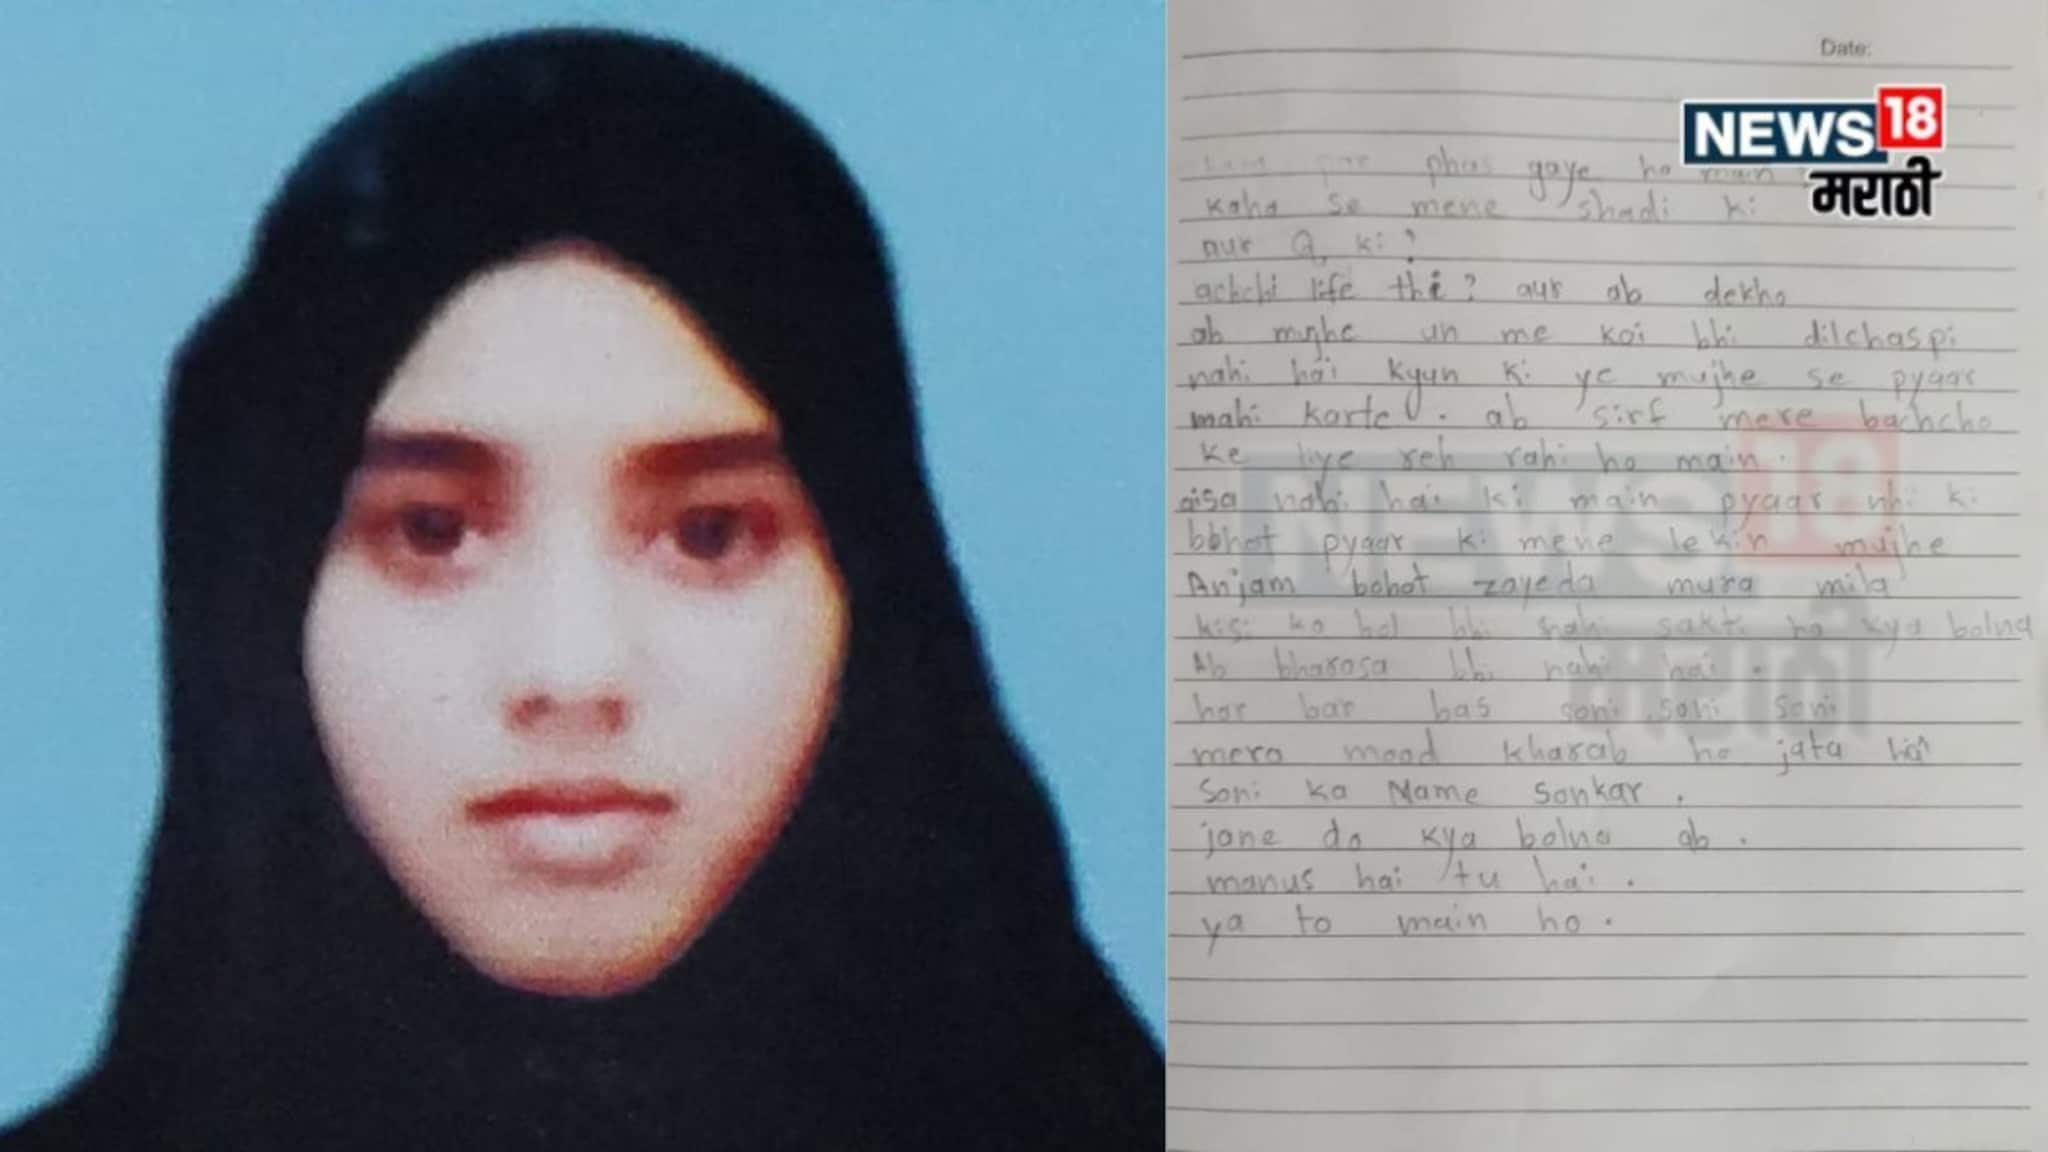 Date:
NEWS 18
मराठी
phas gaye ho main
kaha se mene shadi ki
aur Q ki?
achchi life thi? aur ab dekho
ab mujhe un me koi bhi dilchaspi
nahi hai kyun ki ye mujhe se pyaar
mahi karte. ab sirf mere bachcho
ke liye reh rahi ho main.
aisa nahi hai ki main pyaar nhi ki
bohot pyaar ki mene lekin mujhe
Anjam bohot zayeda mura mila
kisi ko bol bhi nahi sakti ho kya bolna
Ab bharosa bhi nahi hai.
har bar bas soni soni soni
mera mood kharab ho jata hai
Soni ka Name Sonkar.
jane do kya bolna ab.
manus hai tu hai.
ya to main ho.
NEWS 18
मराठी